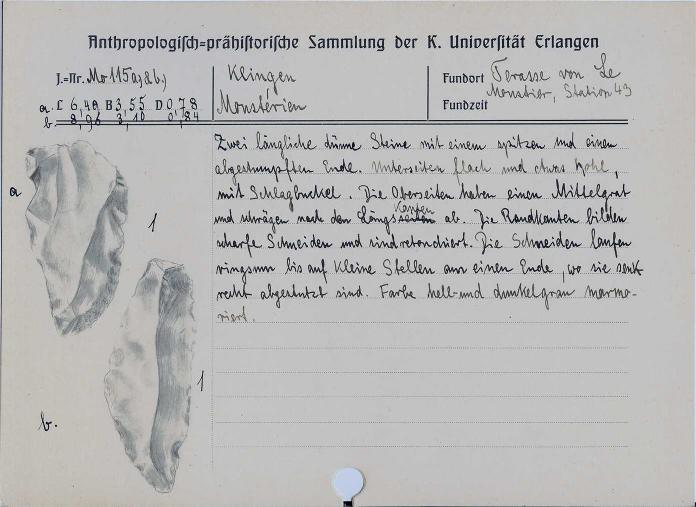 Anthropologisch-prähistorische Sammlung der K. Universität Erlangen
J.=Nr. Mo 115a,&b,)
Klingen
Mousterien
Fundort Terasse von Le
Moustier, Station 43
Fundzeit
a. L 6,40 B 3,55 D 0,78
b. 8,96 3,10 0,84
Zwei längliche dünne Steine mit einem spitzen und einen
abgestumpften Ende. Unterseiten flach und etwas hohl,
mit Schlagbuckel. Die Oberseiten haben einen Mittelgrat
und schrägen nach den Längsseiten Kanten ab. Die Randkanten bilden
scharfe Schneiden und sind retouchiert. Die Schneiden laufen
ringsum bis auf kleine Stellen am einen Ende, wo sie senk
recht abgestutzt sind. Farbe hell- und dunkelgrau marmo-
riert.
a
1
1
b.